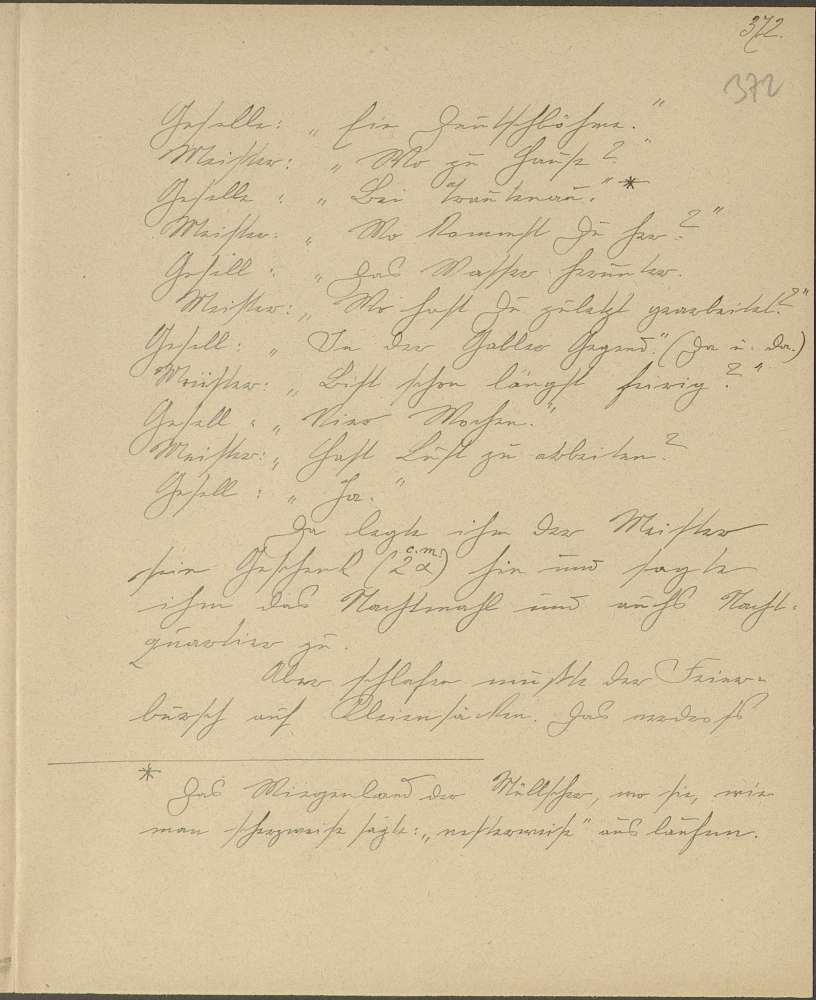 372.
372
Geselle: „Ein Deutschböhme."
Meister: „Wo zu Hause?"
Geselle: „Bei Trautenau."*
Meister: „Wo kommst Du her?"
Gesell: „Das Wasser herunter.
Meister: „Wo hast Du zuletzt gearbeitet?"
Gesell: „In der Gabler Gegend." (Da u. da.)
Meister: „Bist schon längst feirig?"
Gesell: „Vier Wochen."
Meister: „Hast Lust zu arbeiten?
Gesell: „Ja."
Da legte ihm der Meister
sein Geschenk (2 c.m.) hin und sagte
ihm das Nachtmahl und auchs Nacht-
quartier zu.
Aber schlafen mußte der Feier-
bursch auf Kleiensäcken. Das
* Das Wiegenland der Müllscher, wo sie, wie
man scherzweise sagte: „nesterweise" auslaufen.